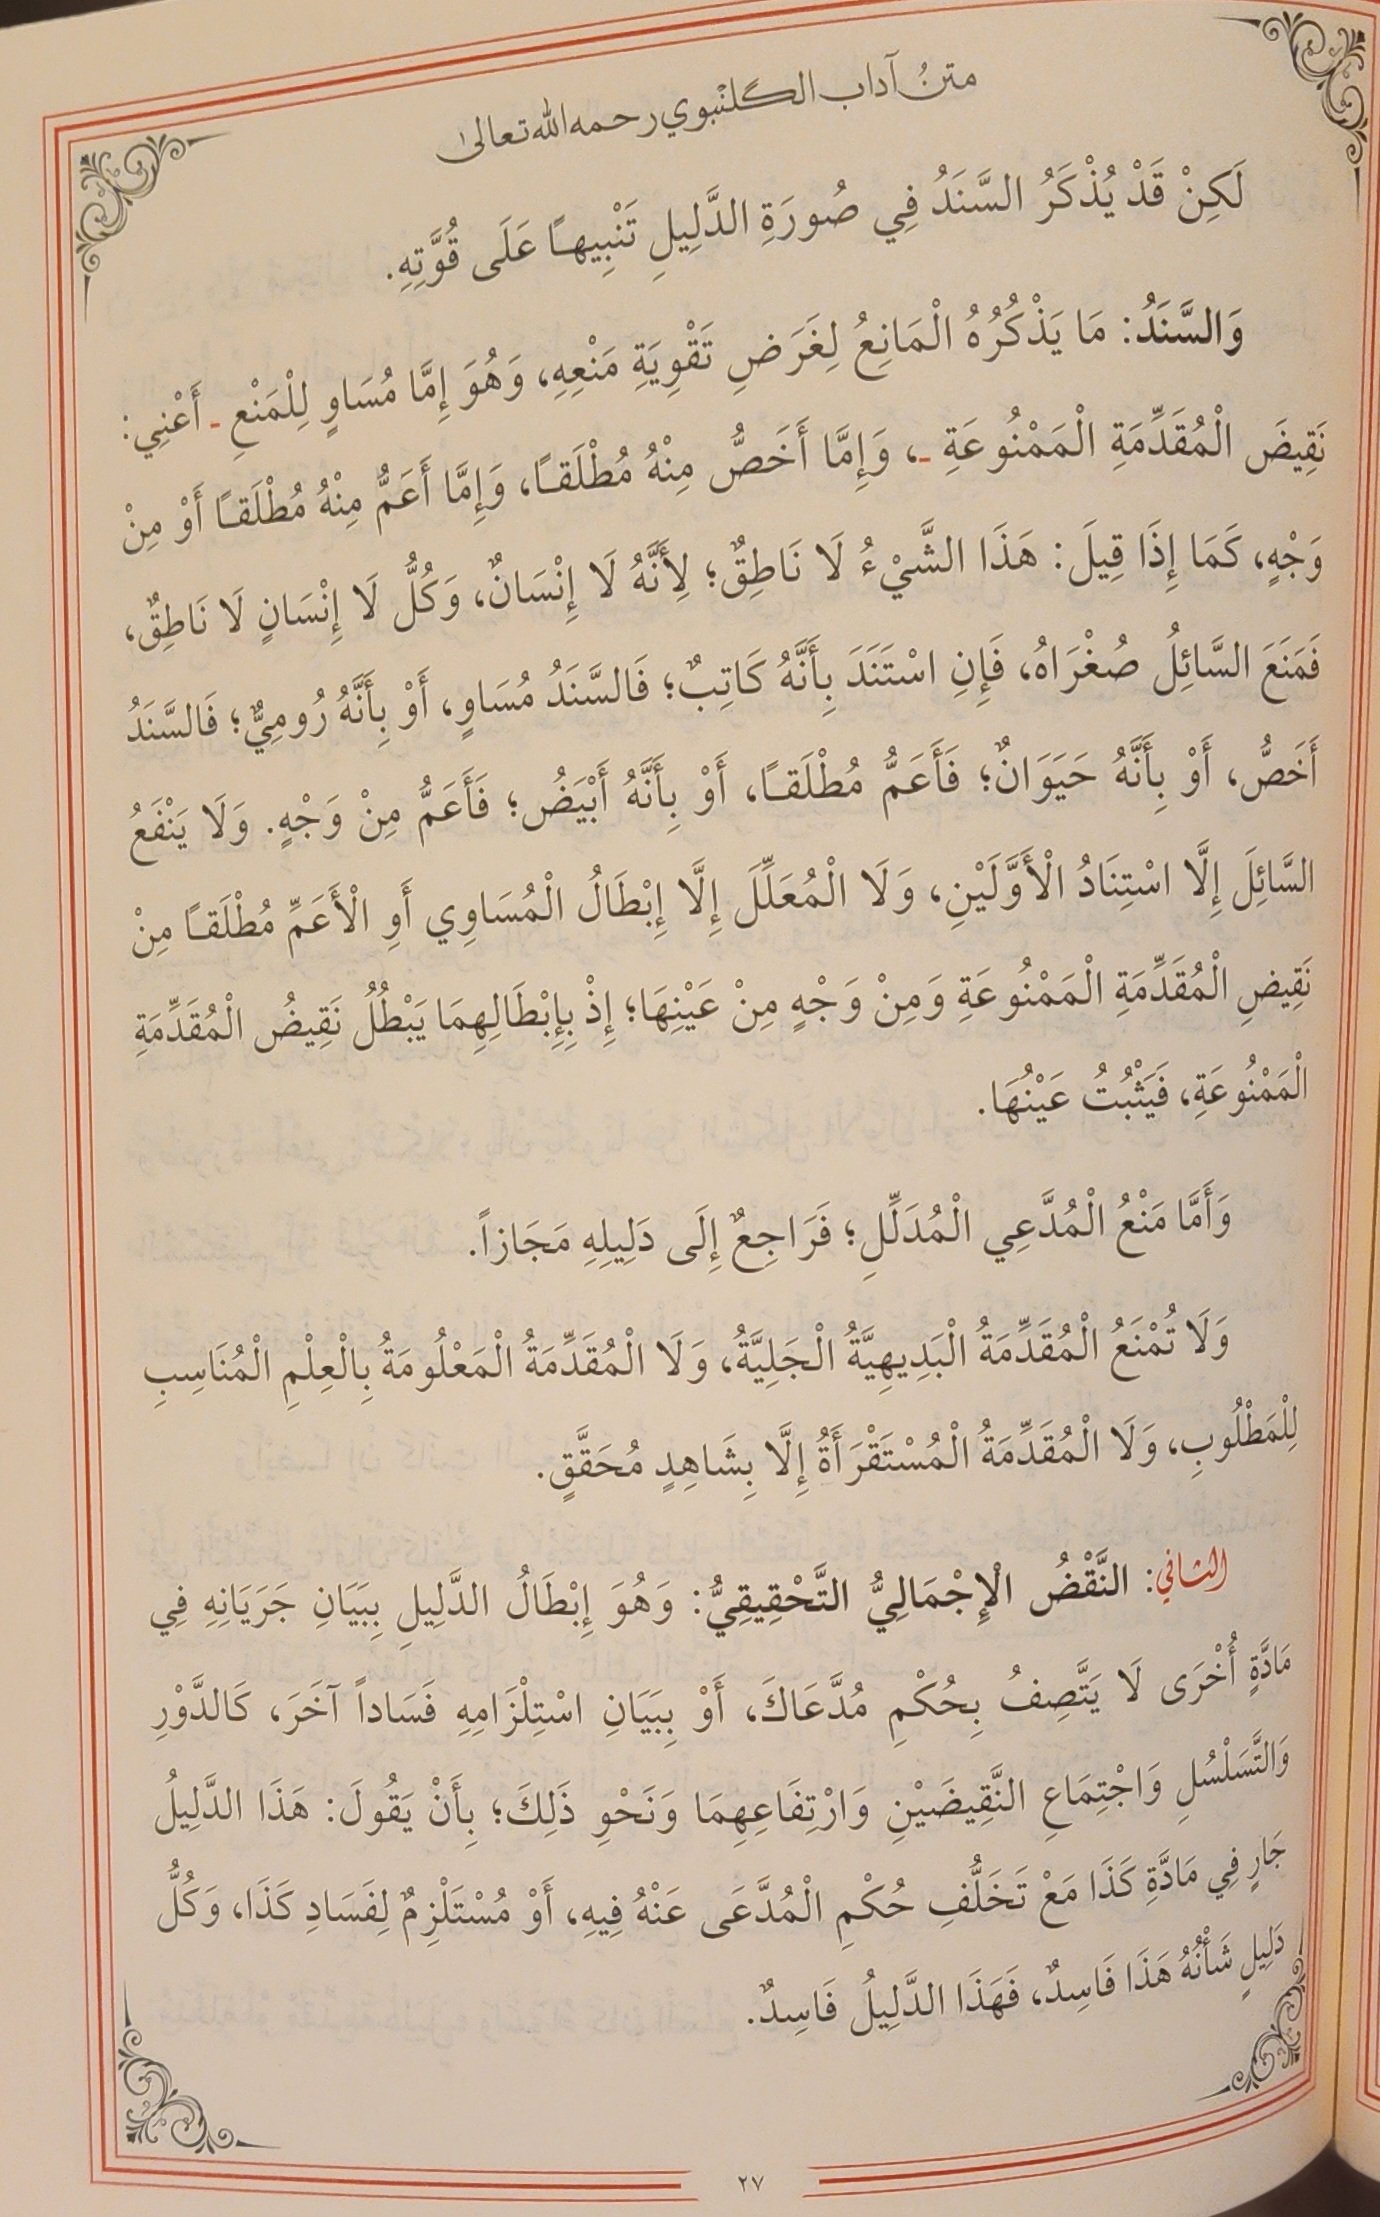 متنُ آداب الگلنْبوي رحمه الله تعالىٰ
لَكِنْ قَدْ يُذْكَرُ السَّنَدُ فِي صُورَةِ الدَّلِيلِ تَنْبِيهًا عَلَى قُوَّتِهِ.
وَالسَّنَدُ: مَا يَذْكُرُهُ الْمَانِعُ لِغَرَضِ تَقْوِيَةِ مَنْعِهِ، وَهُوَ إِمَّا مُسَاوٍ لِلْمَنْعِ - أَعْنِي:
نَقِيضَ الْمُقَدِّمَةِ الْمَمْنُوعَةِ -، وَإِمَّا أَخَصُّ مِنْهُ مُطْلَقًا، وَإِمَّا أَعَمُّ مِنْهُ مُطْلَقًا أَوْ مِنْ
وَجْهٍ، كَمَا إِذَا قِيلَ: هَذَا الشَّيْءُ لَا نَاطِقٌ؛ لِأَنَّهُ لَا إِنْسَانٌ، وَكُلُّ لَا إِنْسَانٍ لَا نَاطِقٌ،
فَمَنَعَ السَّائِلُ صُغْرَاهُ، فَإِنِ اسْتَنَدَ بِأَنَّهُ كَاتِبٌ؛ فَالسَّنَدُ مُسَاوٍ، أَوْ بِأَنَّهُ رُومِيٌّ؛ فَالسَّنَدُ
أَخَصُّ، أَوْ بِأَنَّهُ حَيَوَانٌ؛ فَأَعَمُّ مُطْلَقًا، أَوْ بِأَنَّهُ أَبْيَضُ؛ فَأَعَمُّ مِنْ وَجْهٍ. وَلَا يَنْفَعُ
السَّائِلَ إِلَّا اسْتِنَادُ الْأَوَّلَيْنِ، وَلَا الْمُعَلِّلَ إِلَّا إِبْطَالُ الْمُسَاوِي أَوِ الْأَعَمِّ مُطْلَقًا مِنْ
نَقِيضِ الْمُقَدِّمَةِ الْمَمْنُوعَةِ وَمِنْ وَجْهٍ مِنْ عَيْنِهَا؛ إِذْ بِإِبْطَالِهِمَا يَبْطُلُ نَقِيضُ الْمُقَدِّمَةِ
الْمَمْنُوعَةِ، فَيَثْبُتُ عَيْنُهَا.
وَأَمَّا مَنْعُ الْمُدَّعِي الْمُدَلِّلِ؛ فَرَاجِعٌ إِلَى دَلِيلِهِ مَجَازاً.
وَلَا تُمْنَعُ الْمُقَدِّمَةُ الْبَدِيهِيَّةُ الْجَلِيَّةُ، وَلَا الْمُقَدِّمَةُ الْمَعْلُومَةُ بِالْعِلْمِ الْمُنَاسِبِ
لِلْمَطْلُوبِ، وَلَا الْمُقَدِّمَةُ الْمُسْتَقْرَأَةُ إِلَّا بِشَاهِدٍ مُحَقَّقٍ.
الثاني: النَّقْضُ الْإِجْمَالِيُّ التَّحْقِيقِيُّ: وَهُوَ إِبْطَالُ الدَّلِيلِ بِبَيَانِ جَرَيَانِهِ فِي
مَادَّةٍ أُخْرَى لَا يَتَّصِفُ بِحُكْمِ مُدَّعَاكَ، أَوْ بِبَيَانِ اسْتِلْزَامِهِ فَسَاداً آخَرَ، كَالدَّوْرِ
وَالتَّسَلْسُلِ وَاجْتِمَاعِ النَّقِيضَيْنِ وَارْتِفَاعِهِمَا وَنَحْوِ ذَلِكَ؛ بِأَنْ يَقُولَ: هَذَا الدَّلِيلُ
جَارٍ فِي مَادَّةِ كَذَا مَعْ تَخَلُّفِ حُكْمِ الْمُدَّعَى عَنْهُ فِيهِ، أَوْ مُسْتَلْزِمٌ لِفَسَادِ كَذَا، وَكُلُّ
دَلِيلٍ شَأْنُهُ هَذَا فَاسِدٌ، فَهَذَا الدَّلِيلُ فَاسِدٌ.
٢٧